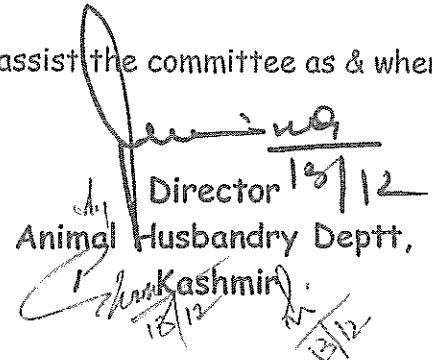 assist the committee as & when
13/12
Director
Animal Husbandry Deptt,
Kashmir
13/12
13/12